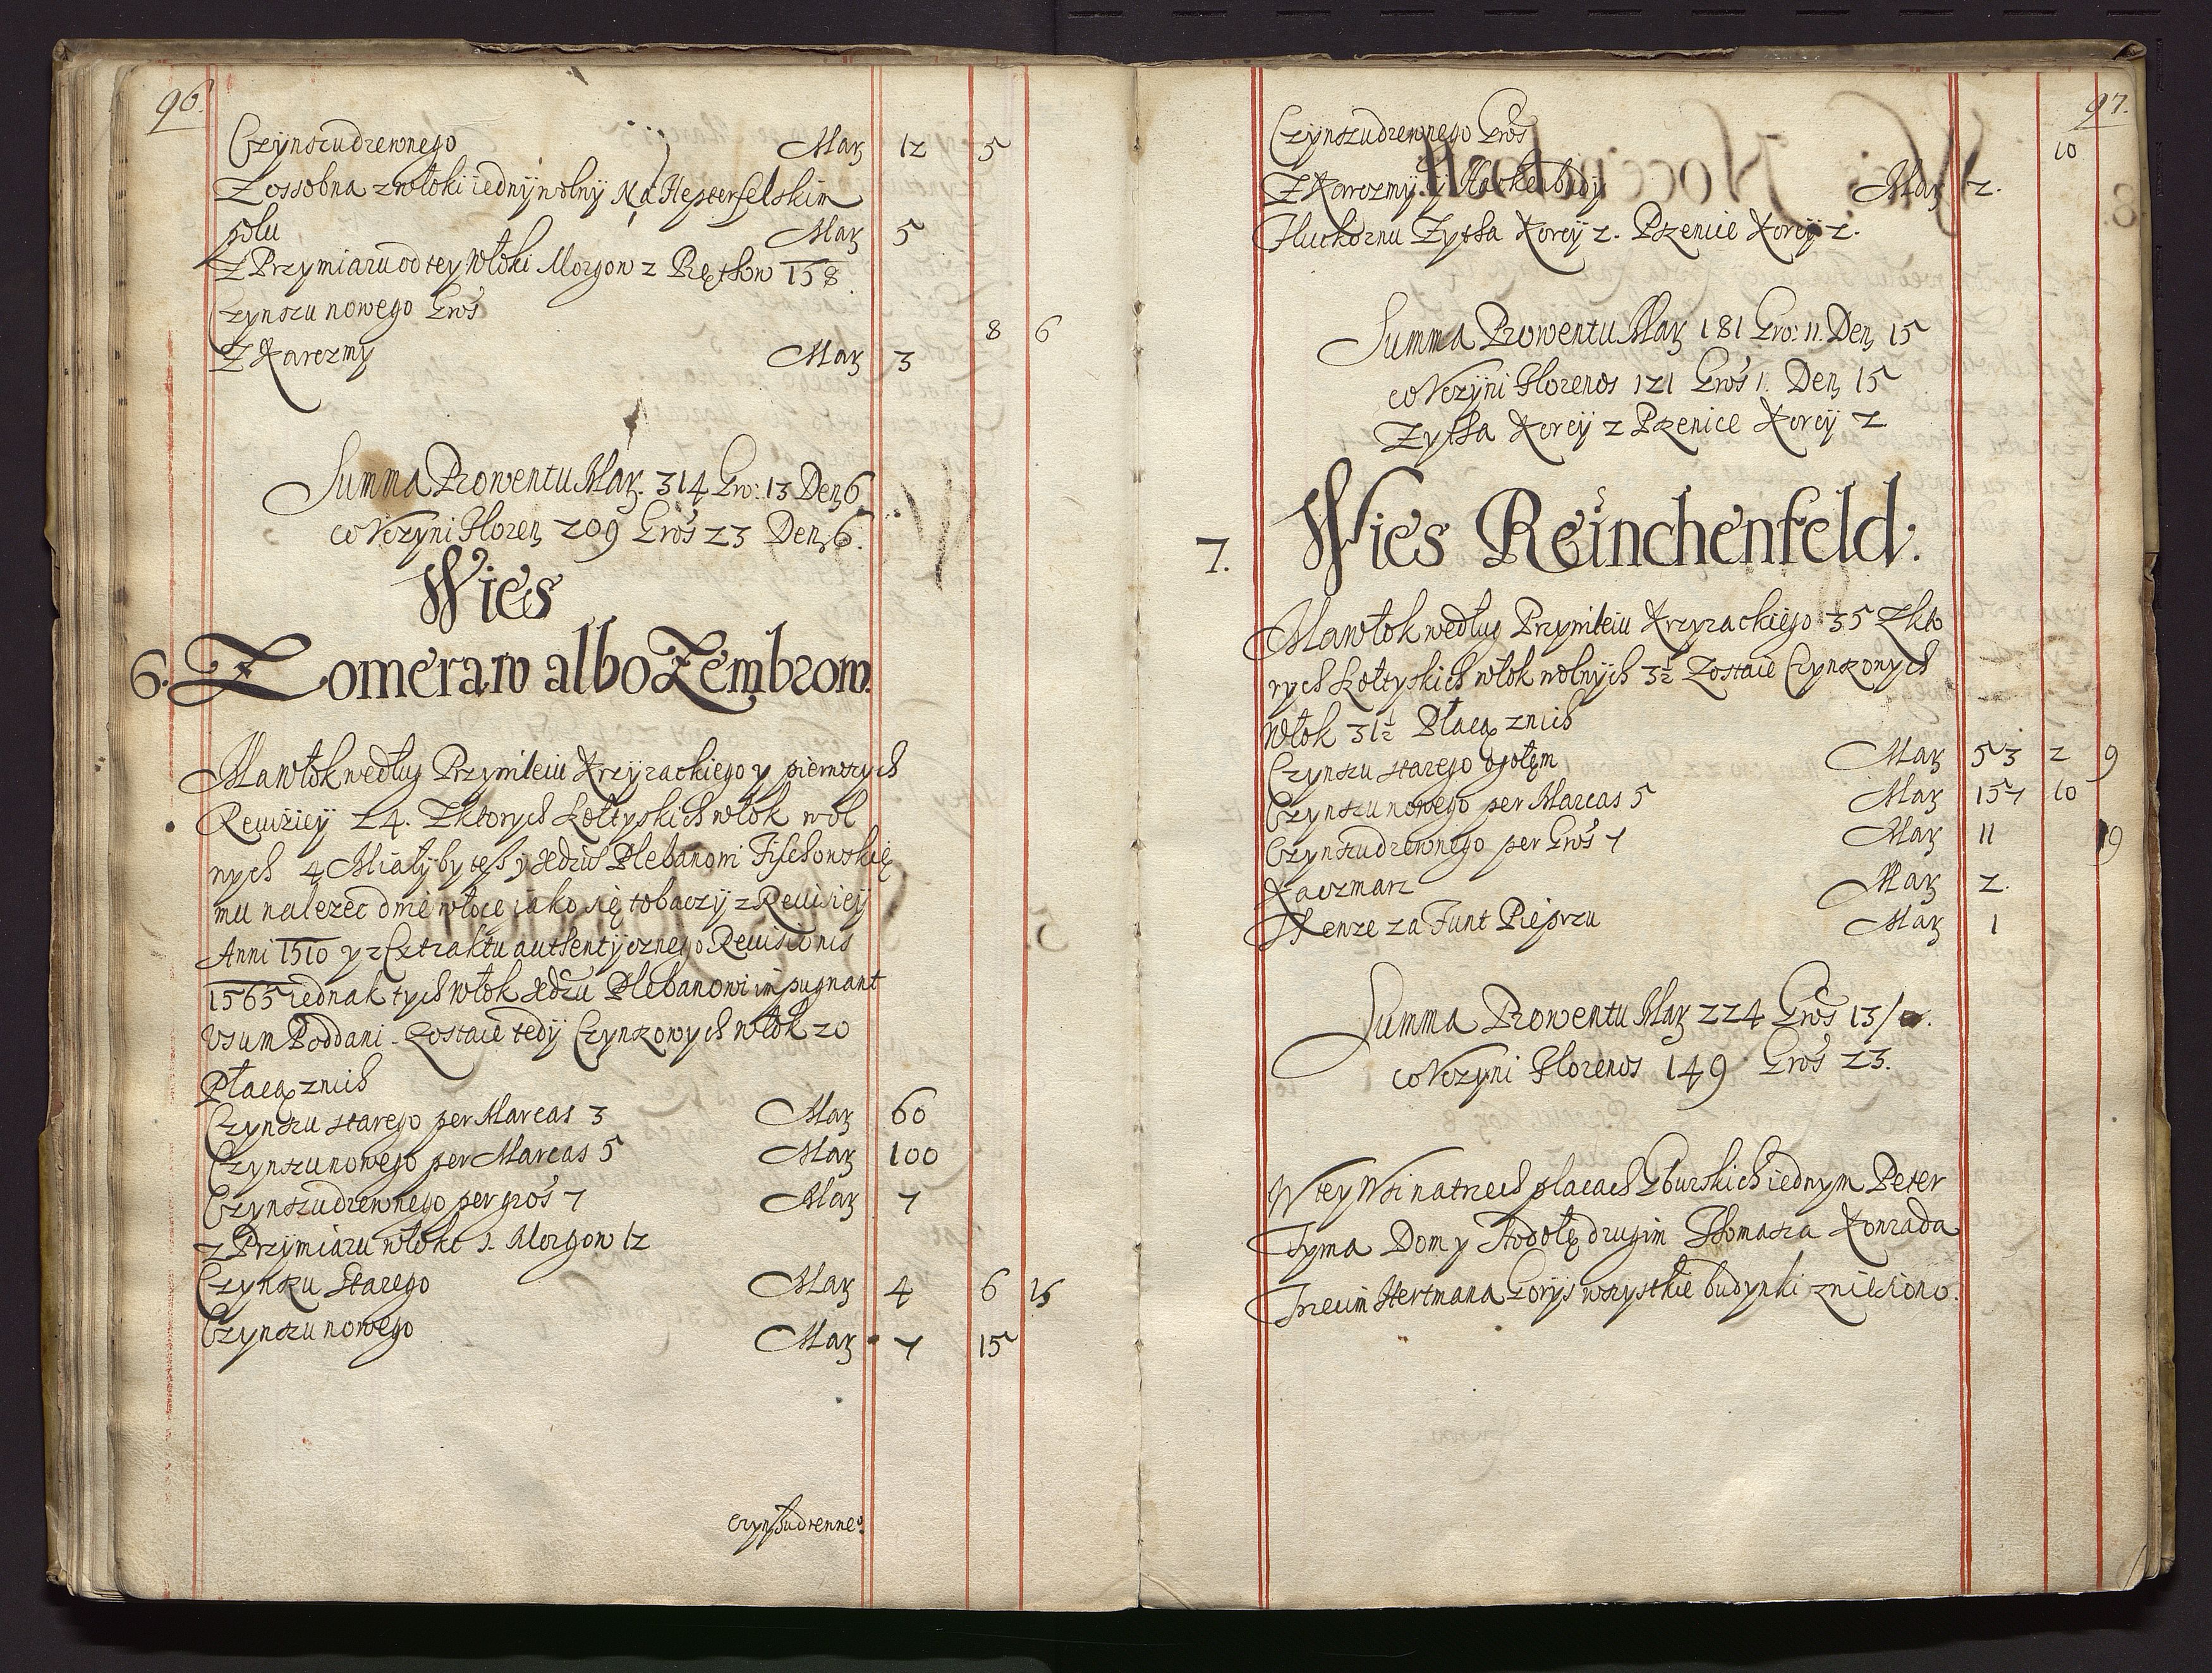 96.
Czynszu drzewnego Marż 12 5
Z ossobna z włoki iedny wolny Na Hesterfelskim
polu Marż 5
Z Przymiaru od tey Włoki Morgow 2 Prętkow 158.
Czynszu nowego Gros 8 6
Z Karczmy Marż 3
Summa Prowentu Marż. 314 Gro: 13 Den 6
co Vczyni Floren 209 Gros 23 Den 6.
Wies
6. Zomeraw albo Zembrow.
Ma włok według Przywileiu Krzyzackiego y pierwszych
Rewiziey 24. Z ktorych Sołtyskich włok wol
nych 4 Miałyby tesz Xdzu Plebanowi Fischowskię
mu nalezec dwie włoce iako się to baczy z Rewisiey
Anni 1510 y z Extraktu authentycznego Reuisionis
1565 iednak tych włok Xdzu Plebanowi impugnant
Vsum Poddani. Zostaie tedy Czynszowych włok 20
Płacą z nich
Czynszu starego per Marcas 3 Marż 60
Czynszu nowego per Marcas 5 Marż 100
Czynszu drzewnego per gros 7 Marż 7
z Przymiaru włoke 1. Morgow 12
Czynszu Starego Marż 4 6 15
Czynszu nowego Marż 7 15
Czynszu drzewne:
97.
Czynszu drzewnego Gros 10
Z Karczmy y Hackenbudy Marż 2.
Zytha Korcy 2. Pszenice Korcy 2.
Summa Prowentu Marż 181 Gro: 11. Den 15
co Vczyni Florenos 121 Gros 1. Den 15
Zytha Korcy 2 Pszenice Korcy 2
7. Wies Reinchenfeld.
Ma włok według Przywileiu Krzyzackiego 35 Z kto
rych Sołtyskich włok wolnych 3½ Zostaie Czynszowych
Włok 31½ Płacą z nich
Czynszu starego ogołem Marż 53 2 9
Czynszu nowego per Marcas 5 Marż 157 10
Czynszu drzewnego per Gros 7 Marż 11 9
Kaczmarz Marż 2.
za Funt Pieprzu Marż 1
Summa Prowentu Marż 224 Gros 13/
co Vczyni Florenos 149 Gros 23.
W tey Wsi na trzech placach Gburskich iednym Peter
Tyma Dom y Stodołę drugim Thomasza Konrada
Trzecim Hertmana Gorys wszystkie budynki zniesiono.